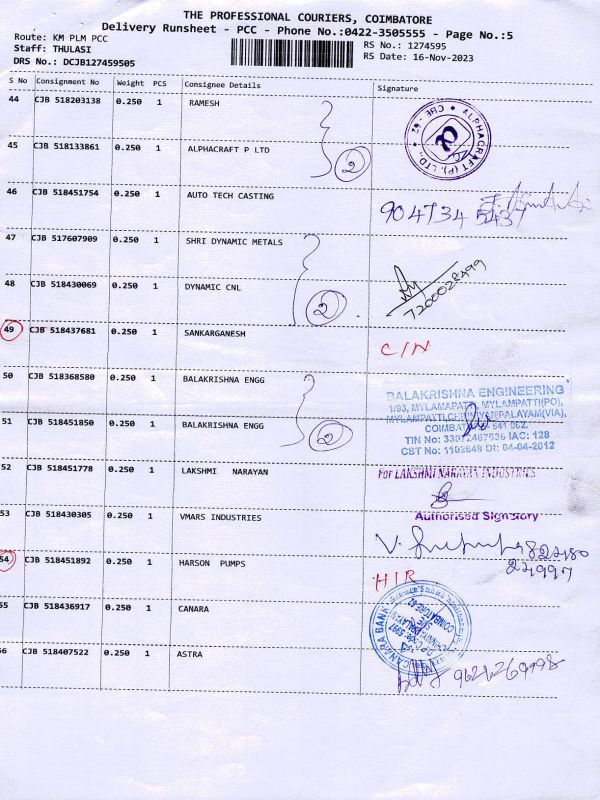 THE PROFESSIONAL COURIERS, COIMBATORE
Delivery Runsheet - PCC - Phone No.:0422-3505555 - Page No.:5
Route: KM PLM PCC
RS No.: 1274595
Staff: THULASI
RS Date: 16-Nov-2023
DRS No.: DCJB127459505
S No Consignment No Weight PCS Consignee Details Signature
44 CJB 518203138 0.250 1 RAMESH
45 CJB 518133861 0.250 1 ALPHACRAFT P LTD
2
ALPHACRAFT (P). LTD.
46 CJB 518451754 0.250 1 AUTO TECH CASTING
904734 5437
47 CJB 517607909 0.250 1 SHRI DYNAMIC METALS
48 CJB 518430069 0.250 1 DYNAMIC CNL
2
7200028499
49 CJB 518437681 0.250 1 SANKARGANESH
C/N
50 CJB 518368580 0.250 1 BALAKRISHNA ENGG
51 CJB 518451850 0.250 1 BALAKRISHNA ENGG
2
BALAKRISHNA ENGINEERING
1/93, MYLAMPATTI, MYLAMPATTI(PO),
COIMBATORE - 641 062.
CST No: 1102648 Dt: 04-04-2012
52 CJB 518451778 0.250 1 LAKSHMI NARAYAN
For LAKSHMI NARAYAN INDUSTRIES
Authorised Signatory
53 CJB 518430305 0.250 1 VMARS INDUSTRIES
54 CJB 518451892 0.250 1 HARSON PUMPS
HIR
55 CJB 518436917 0.250 1 CANARA
CANARA BANK
56 CJB 518407522 0.250 1 ASTRA